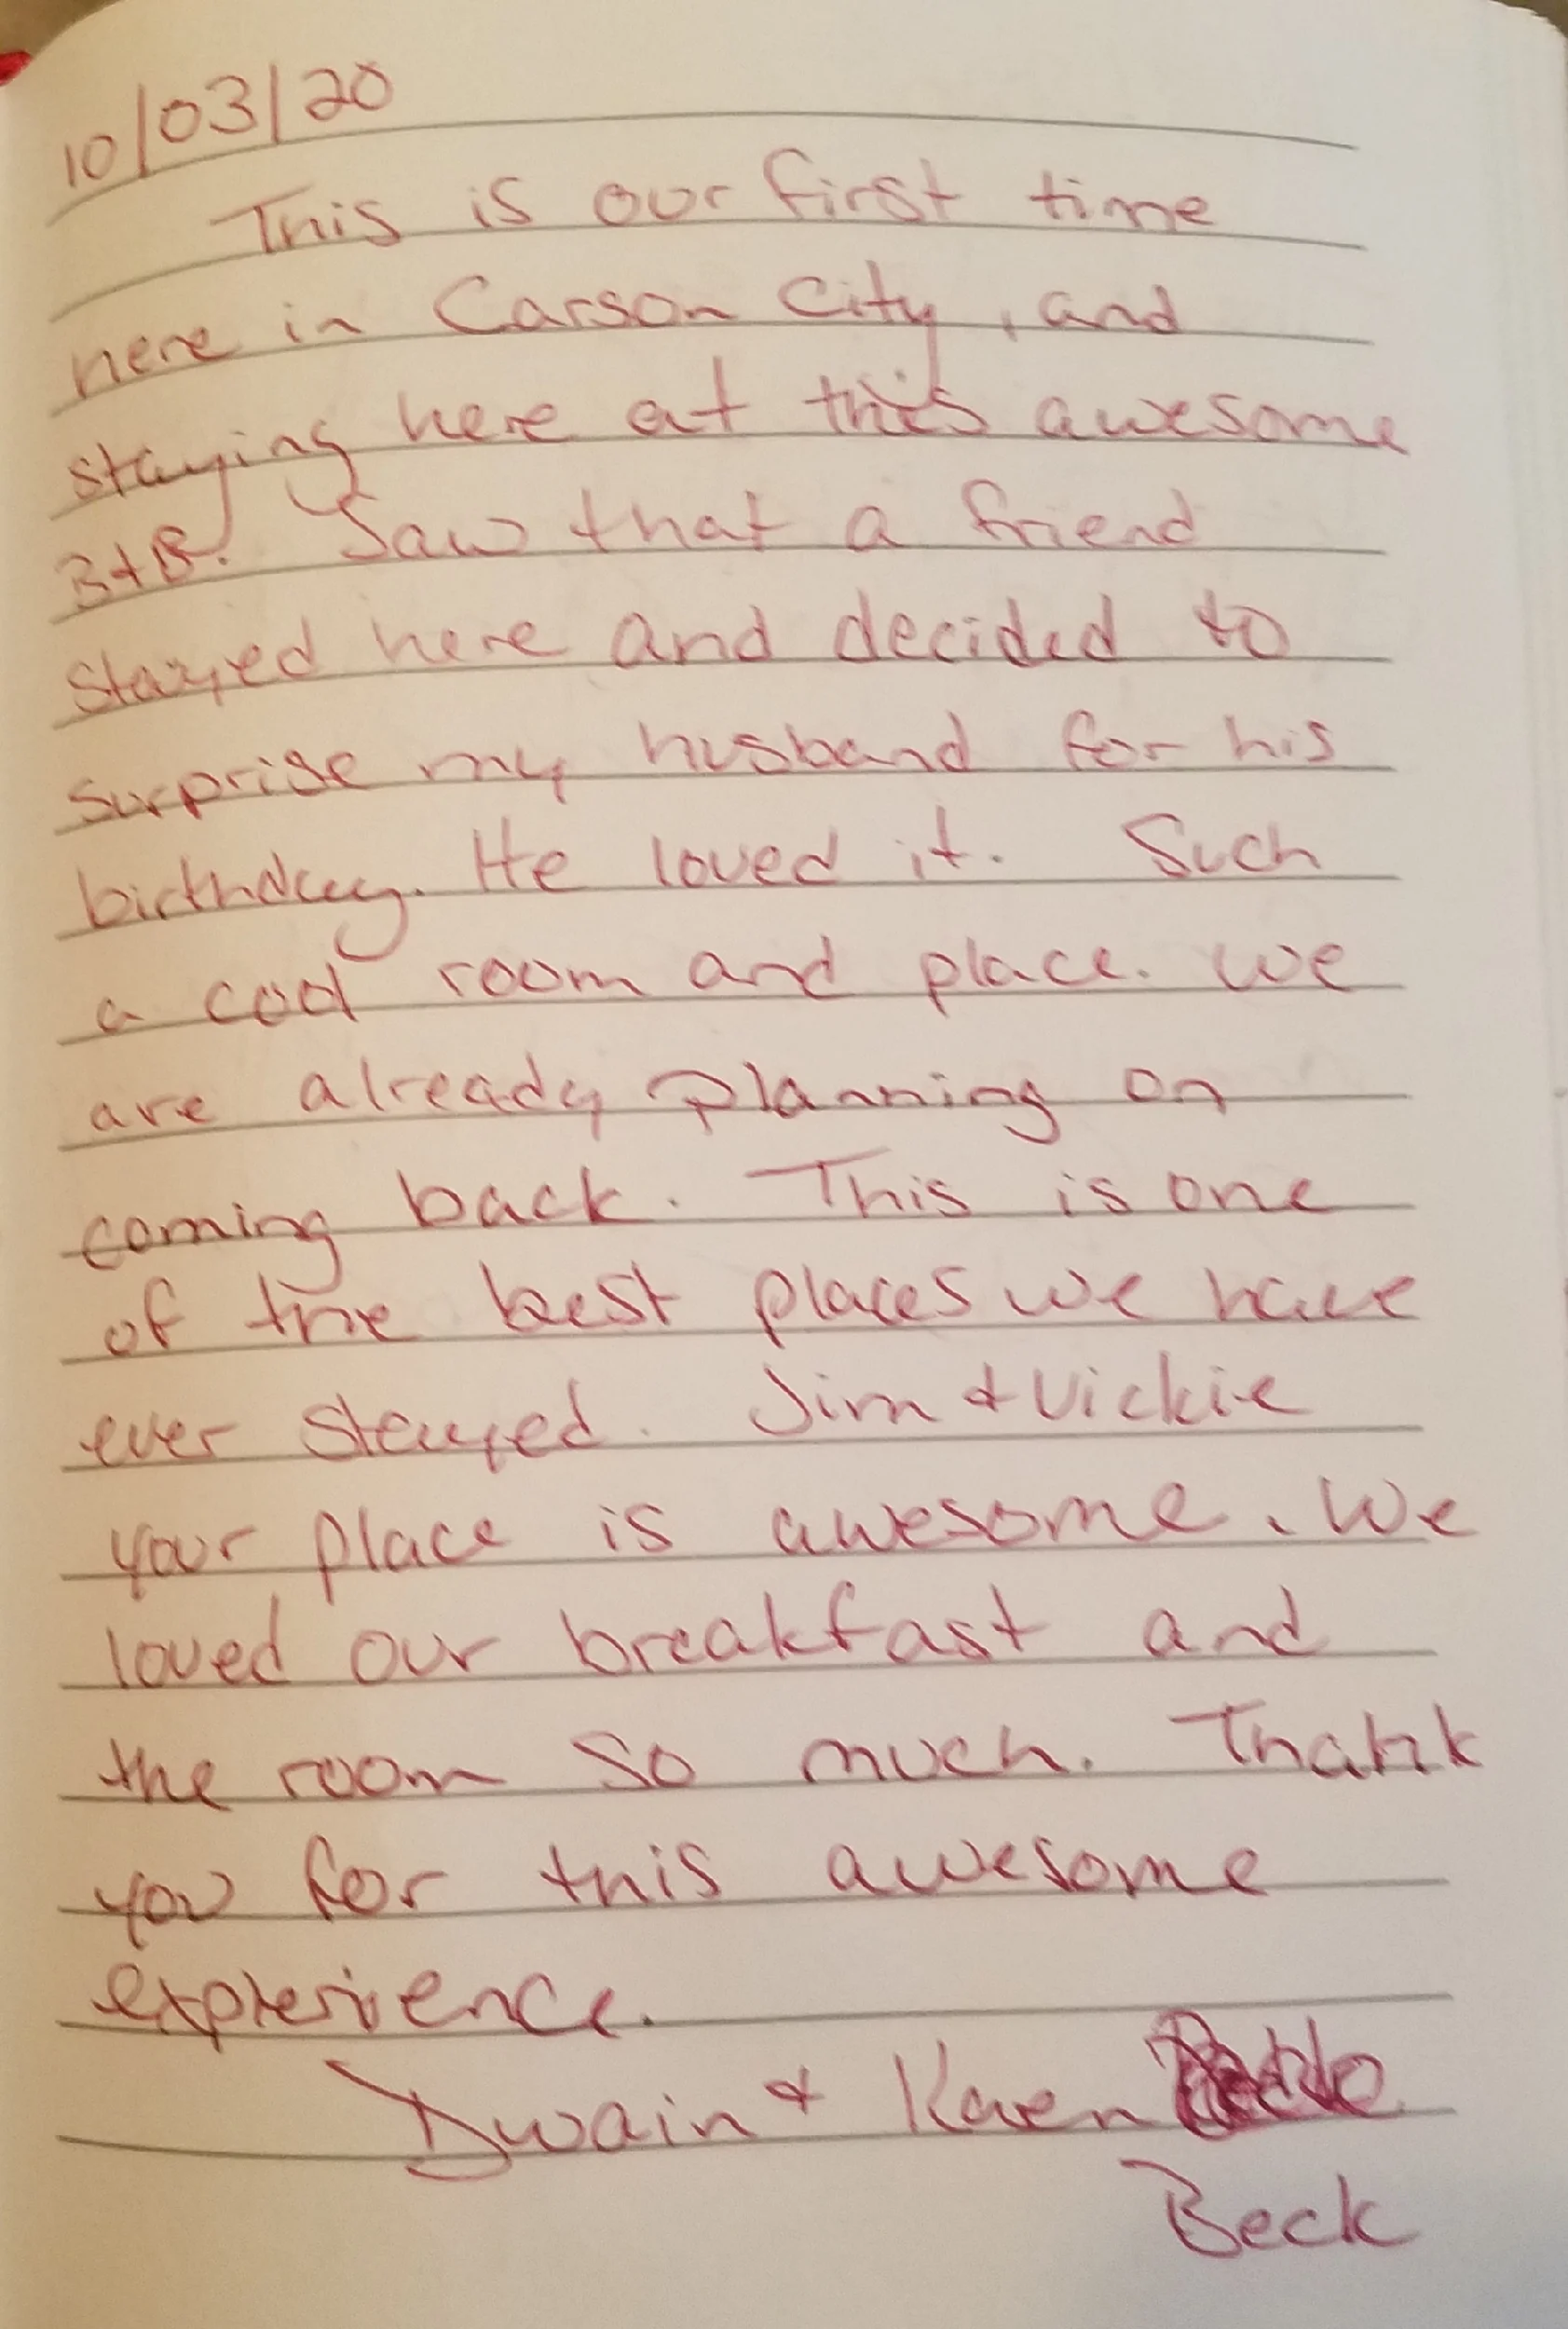 10/03/20
This is our first time
here in Carson City, and
staying here at this awesome
B+B. Saw that a friend
stayed here and decided to
surprise my husband for his
birthday. He loved it. Such
a cool room and place. We
are already planning on
coming back. This is one
of the best places we have
ever stayed. Jim + Vickie
your place is awesome. We
loved our breakfast and
the room so much. Thank
you for this awesome
experience.
Dwain + Karen
Beck